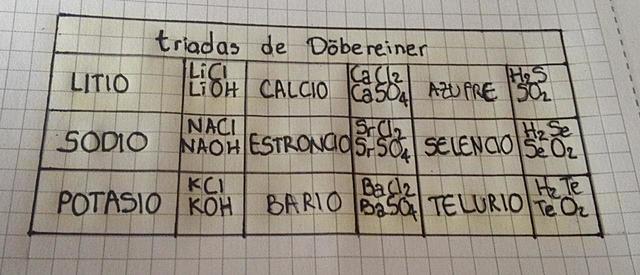 triadas de Döbereiner
LITIO LiCl LiOH CALCIO CaCl2 CaSO4 AZUFRE H2S SO2
SODIO NACl NAOH ESTRONCIO SrCl2 SrSO4 SELENCIO H2Se SeO2
POTASIO KCl KOH BARIO BaCl2 BaSO4 TELURIO H2Te TeO2